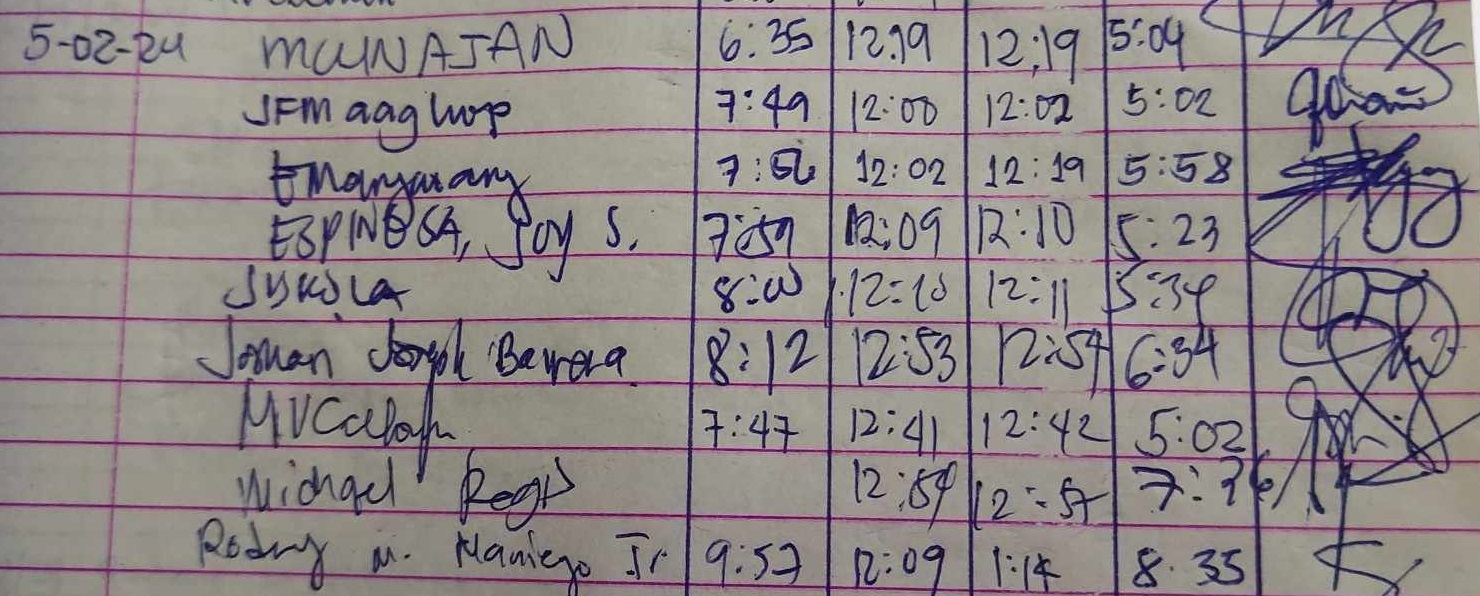 5-02-24 MCUNAJAN 6:35 12:19 12:19 5:04
JFMaaghop 7:49 12:00 12:02 5:02
EManjarany 7:56 12:02 12:19 5:58
ESPINOSA, Joy S. 7:59 12:09 12:10 5:23
8:00 12:10 12:11 5:34
Joseph 8:12 12:53 12:54 6:34
7:47 12:41 12:42 5:02
Michael 12:54 12:57
Rodny M. Maniego Jr. 9:57 12:09 1:14 8:35